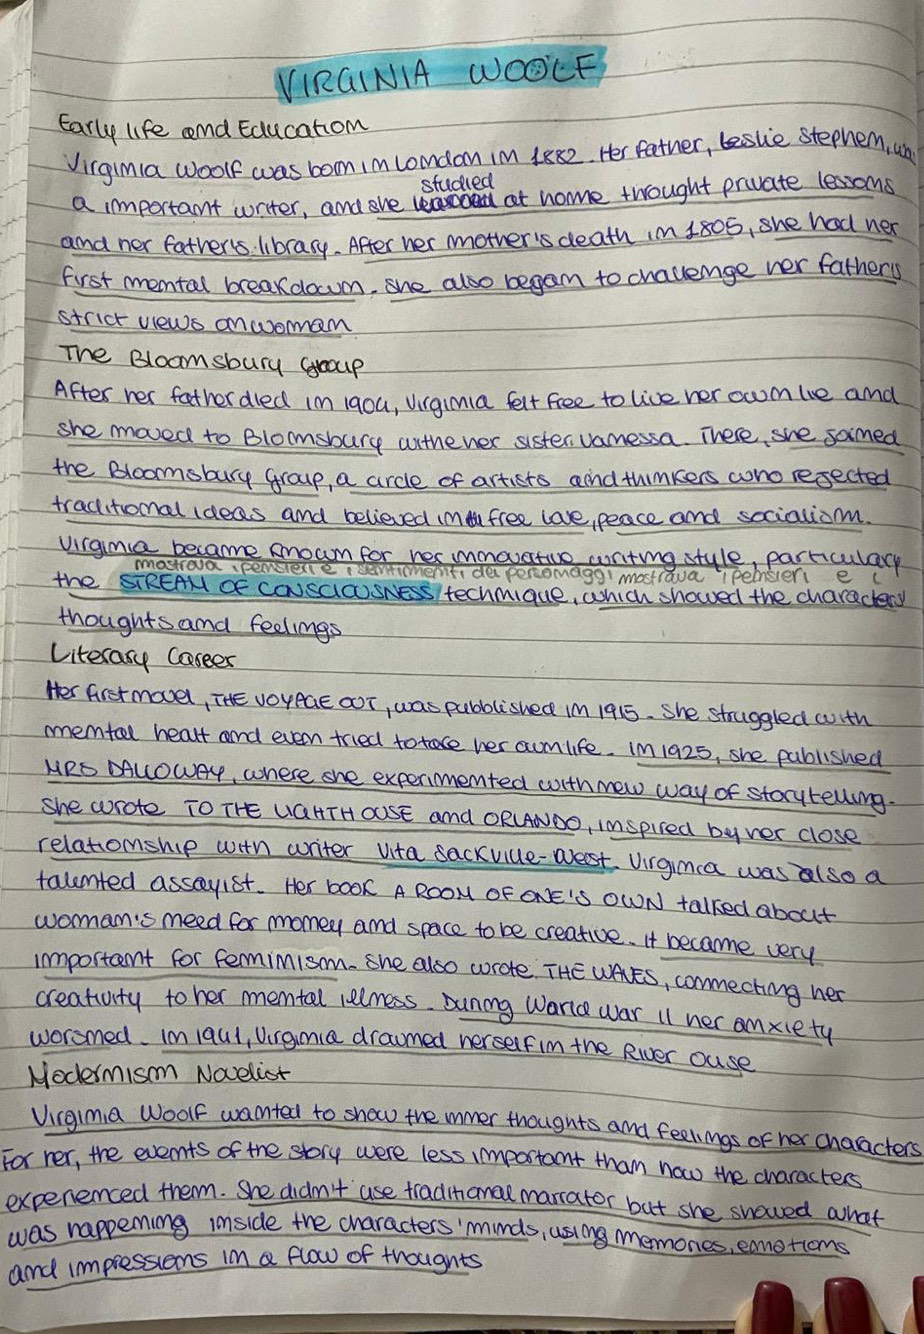 VIRGINIA WOOLF
Early life and Education
Virginia Woolf was born in London in 1882. Her father, Leslie Stephen, was
studied
a important writer, and she at home thought private lessons
and her father's library. After her mother's death in 1805, she had her
first mental breakdown. She also began to challenge her father's
strict views on woman
The Bloomsbury Group
After her father died in 1904, Virginia felt free to live her own live and
she moved to Blomsbury withe her sister Vanessa. There, she joined
the Bloomsbury Group, a circle of artists and thinkers who rejected
traditional ideas and believed in free love, peace and socialism.
Virginia became known for her innovative writing style, particulary
mostrava i pensieri e i sentimenti dei personaggi mostrava i pensieri e i
the STREAM OF CONSCIOUSNESS technique, which showed the characters
thoughts and feelings
Literary Career
Her first novel, THE VOYAGE OUT, was pubblished in 1915. She struggled with
mental healt and even tried to take her own life. In 1925, she published
MRS DALLOWAY, where she experimented with new way of storytelling.
She wrote TO THE LIGHTHOUSE and ORLANDO, inspired by her close
relationship with writer Vita Sackville-West. Virginia was also a
talented assayist. Her book A ROOM OF ONE'S OWN talked about
woman's need for money and space to be creative. It became very
important for femminism. She also wrote THE WAVES, connecting her
creativity to her mental illness. During World War II her anxiety
worsned. In 1941, Virginia drowned herself in the River Ouse
Modernism Novelist
Virginia Woolf wanted to show the inner thoughts and feelings of her characters
For her, the events of the story were less important than how the characters
experienced them. She didn't use traditional narrator but she showed what
was happening inside the characters' minds, using memories, emotions
and impressions in a flow of thoughts